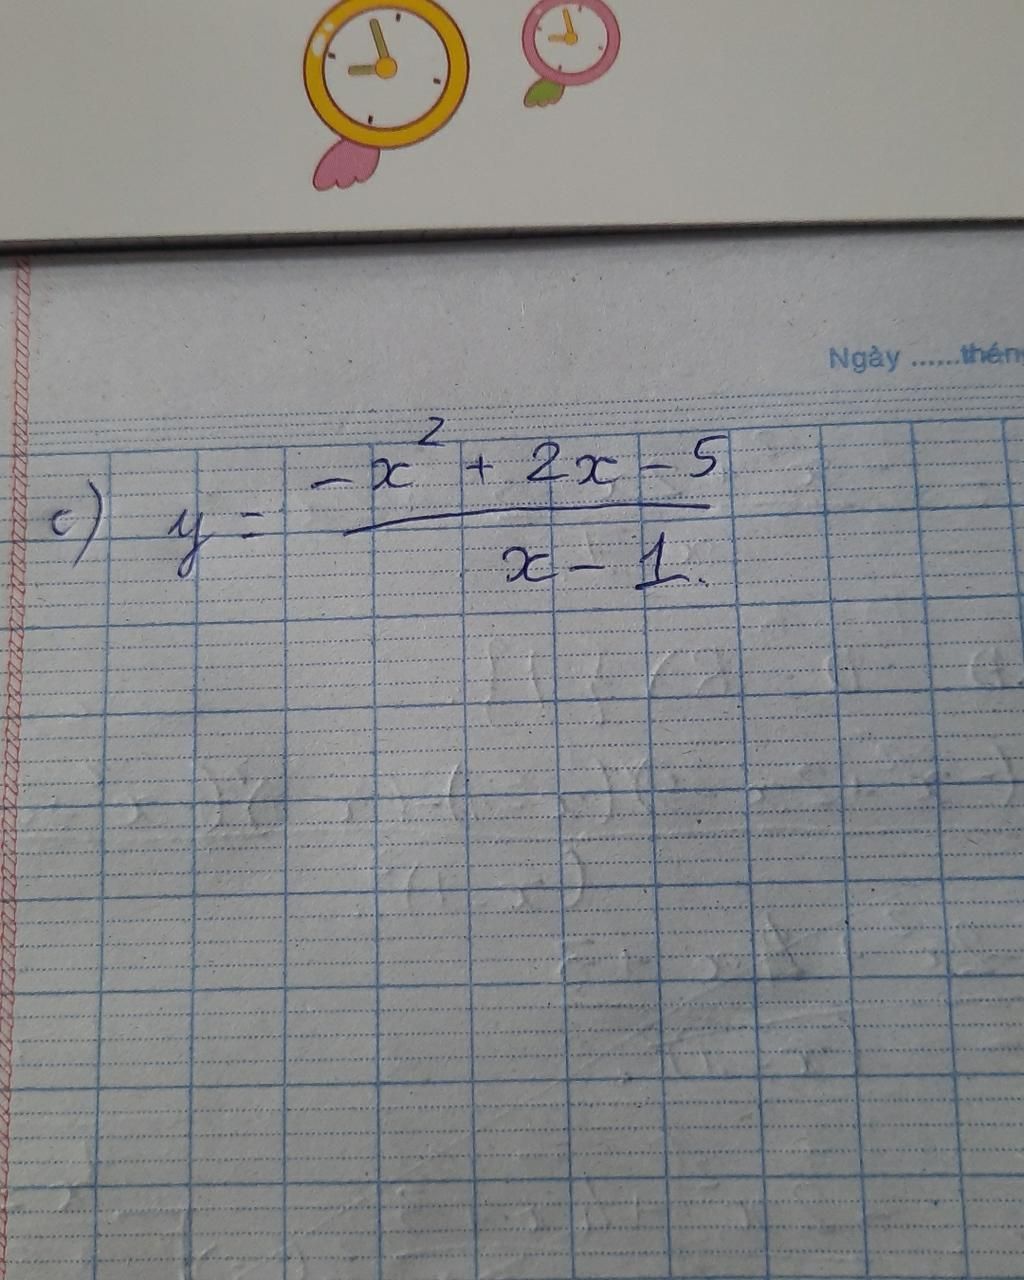 Ngày ......thán
c) y = \frac{-x^2 + 2x - 5}{x - 1.}